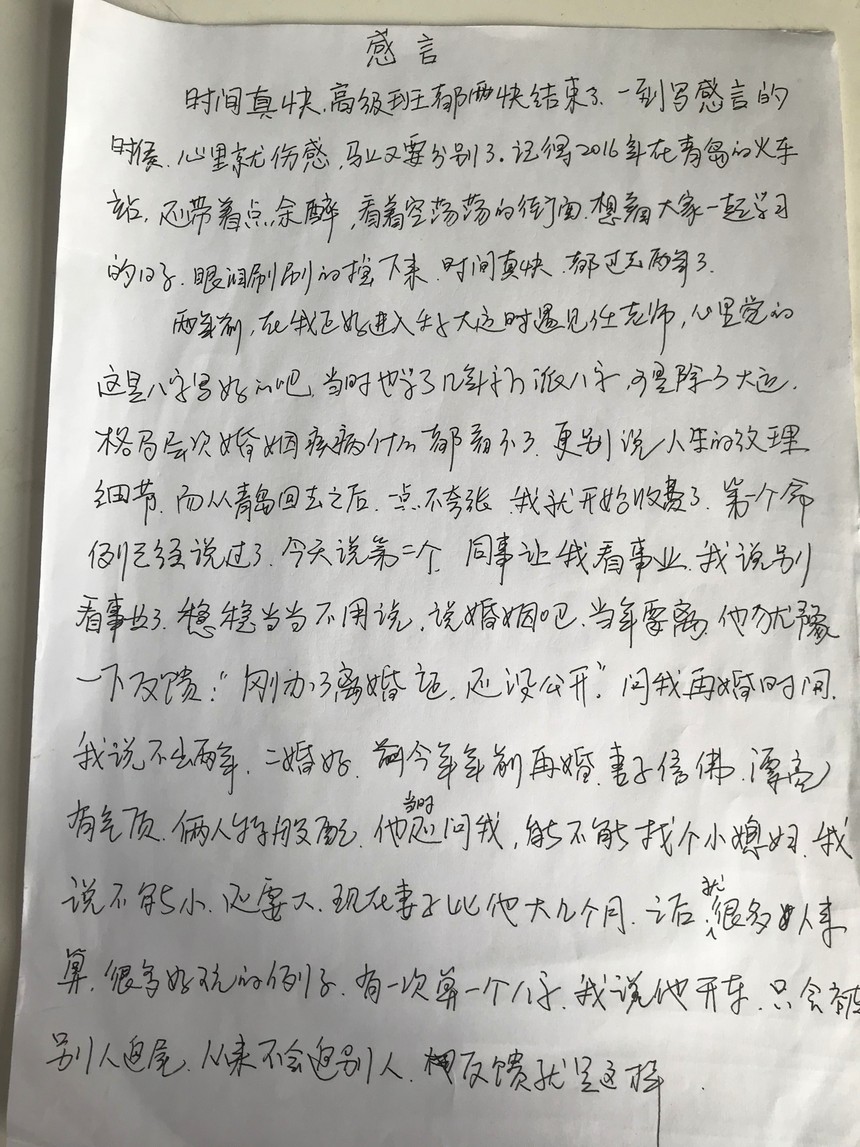 感言
时间真快，高级班都要快结束了。一到写感言的
时候，心里就伤感，马上又要分别了。记得2016年在青岛的火车
站，还带着点余醉，看着空荡荡的街面，想着大家一起学习
的日子，眼泪刷刷的挡下来，时间真快，都过去两年了。
两年前，在我正好进入大运时遇见任老师，心里觉的
这是八字写好的吧，当时也学了几年派八字，可是除了大运，
格局层次婚姻疾病什么都看不了，更别说人生的纹理
细节，而从青岛回去之后，一点不夸张，我就开始收费了。第一个命
例已经说过了，今天说第二个，同事让我看事业，我说别
看事业了，稳稳当当不用说，说婚姻吧，当年要离，他犹豫
一下反馈：“刚办了离婚证，还没公开”。问我再婚时间，
我说不出两年，二婚好，今年年前再婚，妻子信佛，漂亮
有气质，俩人特般配，他当时还问我，能不能找个小媳妇，我
说不能小，还要大，现在妻子比他大几个月，之后就很多人来
算，很多好玩的例子，有一次算一个八字，我说他开车，只会被
别人追尾，从来不会追别人，反馈就是这样．